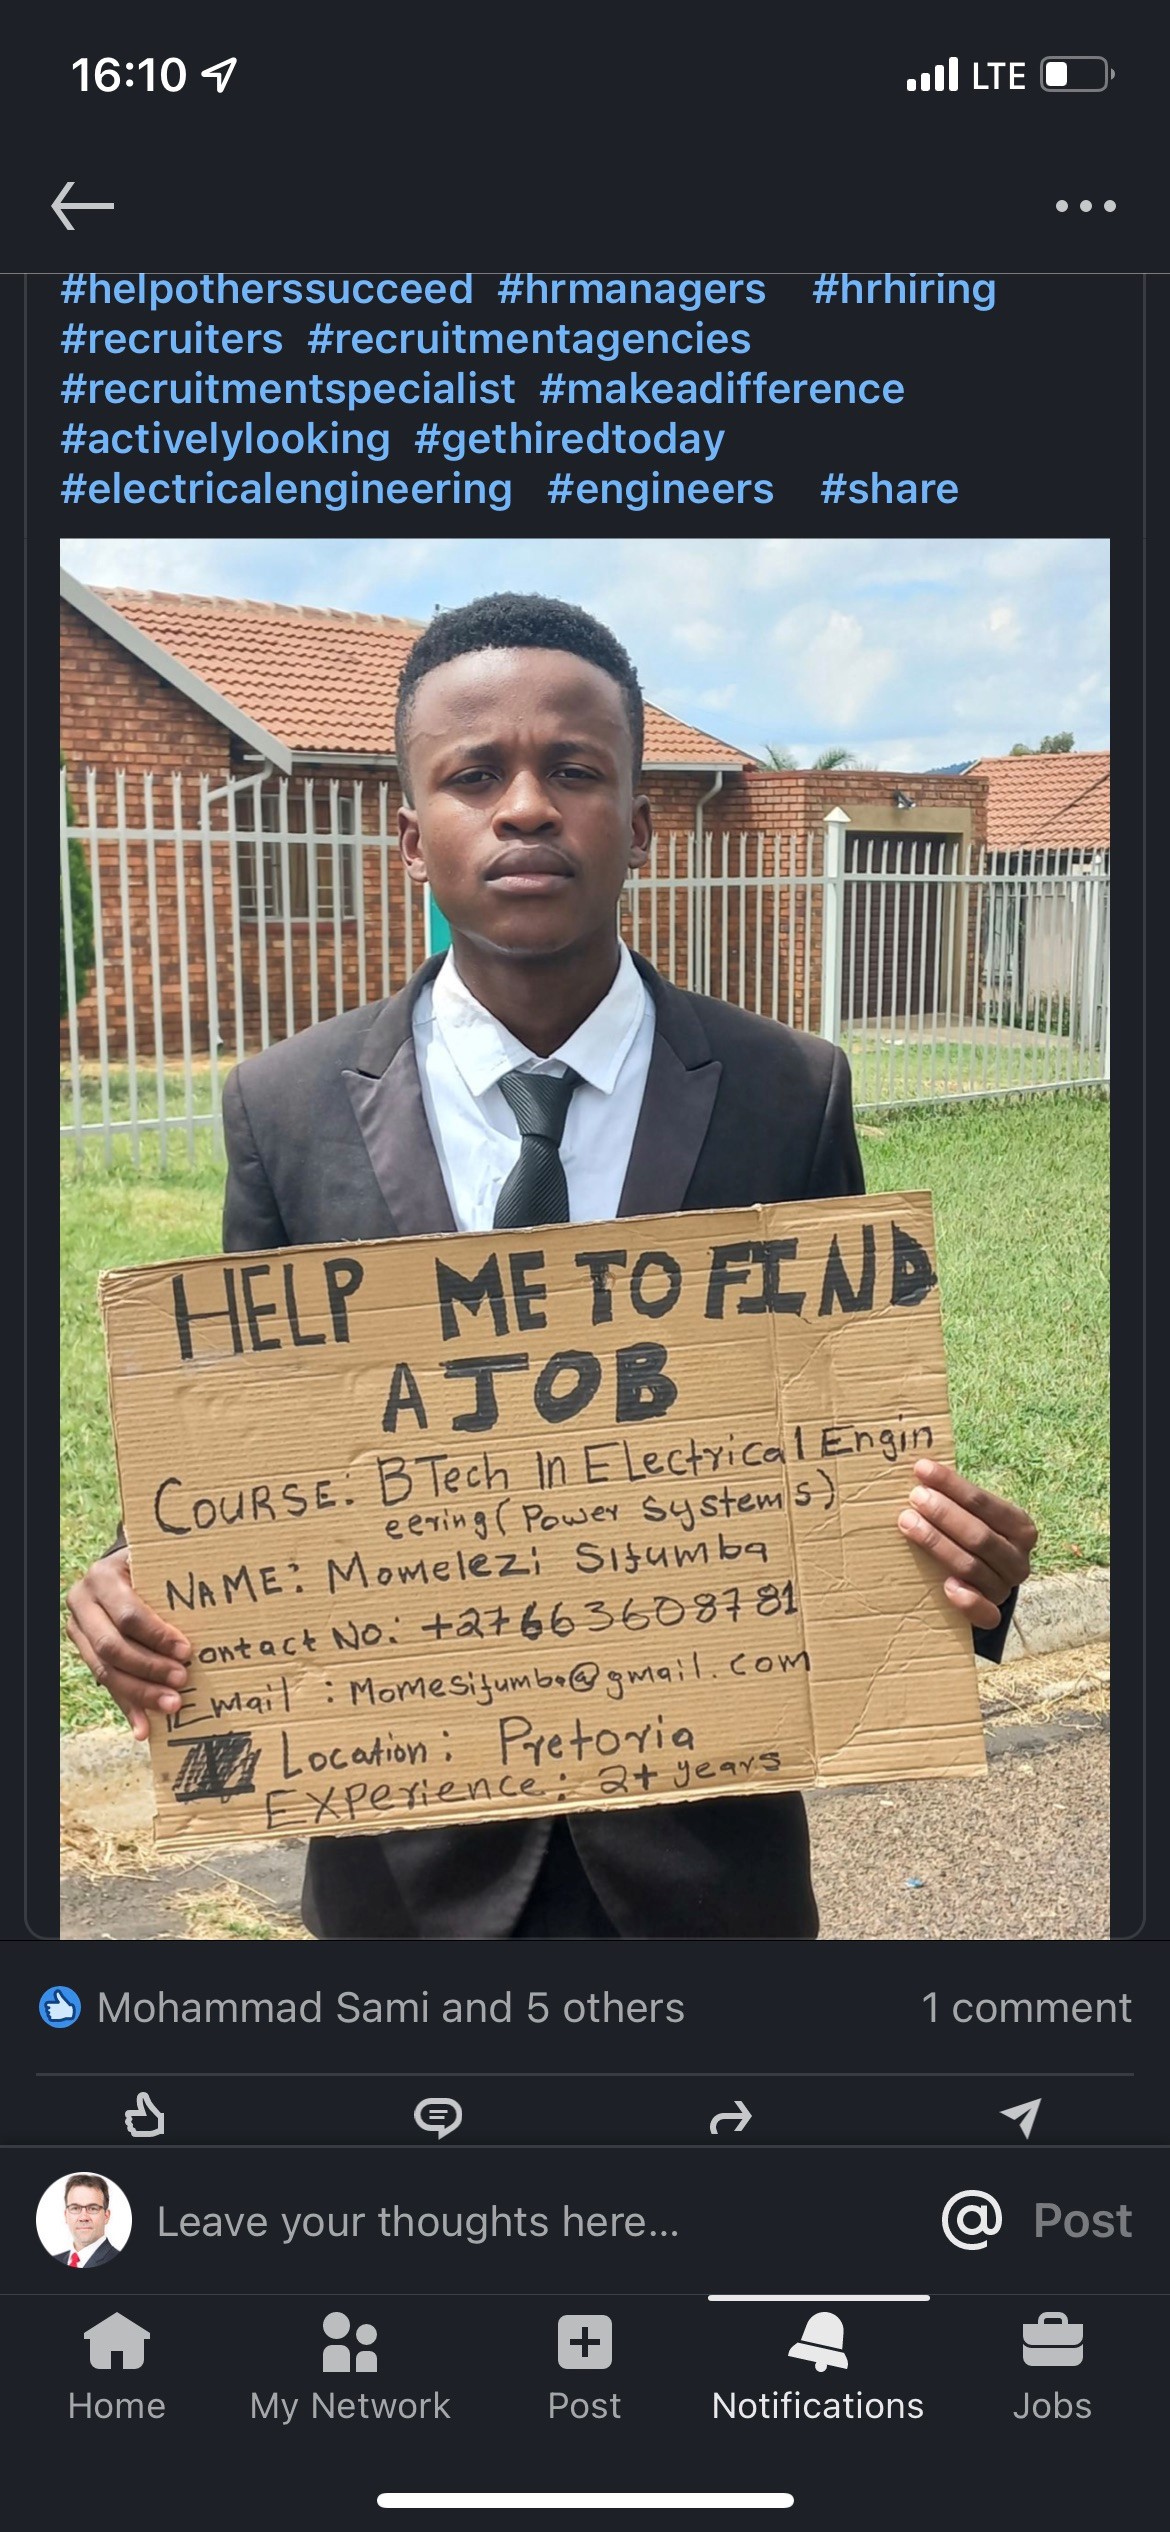 16:10
LTE
#helpotherssucceed #hrmanagers #hrhiring
#recruiters #recruitmentagencies
#recruitmentspecialist #makeadifference
#activelylooking #gethiredtoday
#electricalengineering #engineers #share
HELP ME TO FIND
A JOB
COURSE: BTech In Electrical Engin
eering (Power Systems)
NAME: Momelezi Sifumba
ontact No: +27663608781
Email : Momesifumba@gmail.com
Location : Pretoria
Experience : 2+ years
Mohammad Sami and 5 others
1 comment
Leave your thoughts here...
@ Post
Home My Network Post Notifications Jobs